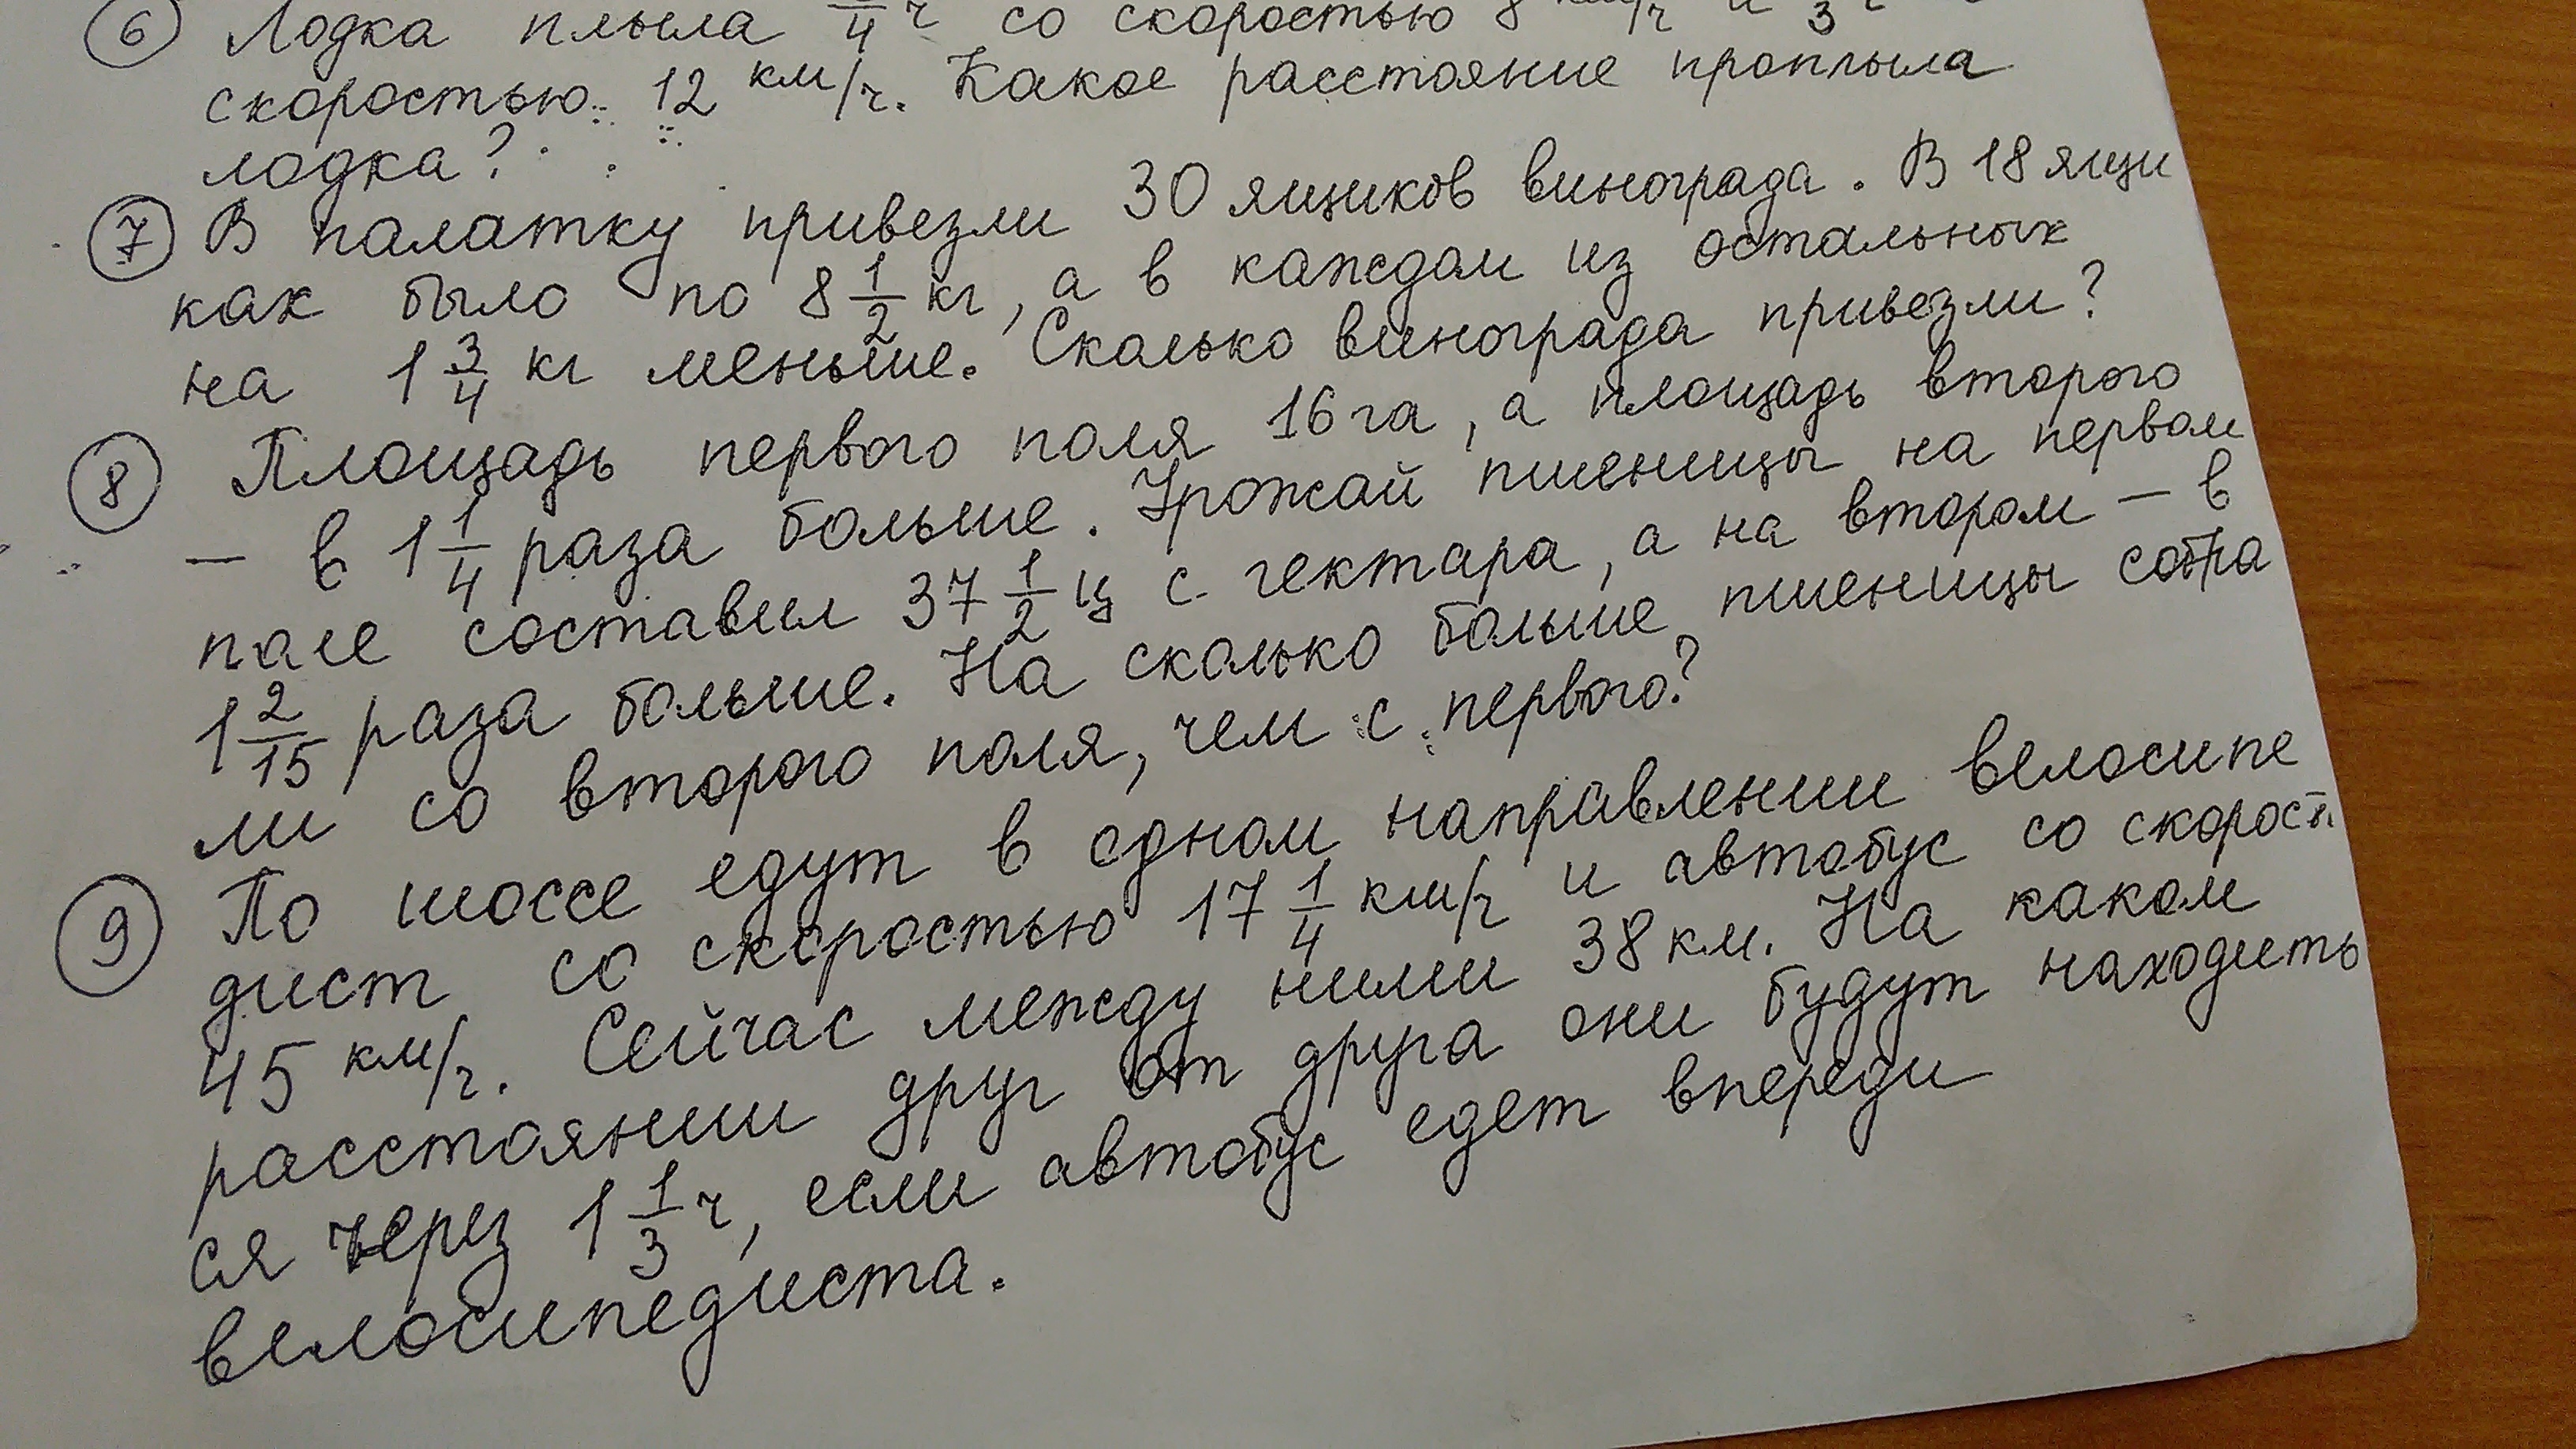 6 Лодка плыла 4 ч со скоростью 8 км/ч и 3
скоростью 12 км/ч. Какое расстояние проплыла
лодка?
7 В палатку привезли 30 ящиков винограда. В 18 ящи
ках было по 8 1/2 кг, а в каждом из остальных
на 1 3/4 кг меньше. Сколько винограда привезли?
8 Площадь первого поля 16 га, а площадь второго
— в 1 1/4 раза больше. Урожай пшеницы на первом
поле составил 37 1/2 ц с гектара, а на втором — в
1 2/15 раза больше. На сколько больше пшеницы собра
ли со второго поля, чем с первого?
9 По шоссе едут в одном направлении велосипе
дист со скоростью 17 1/4 км/ч и автобус со скорост
45 км/ч. Сейчас между ними 38 км. На каком
расстоянии друг от друга они будут находить
ся через 1 1/3 ч, если автобус едет впереди
велосипедиста.